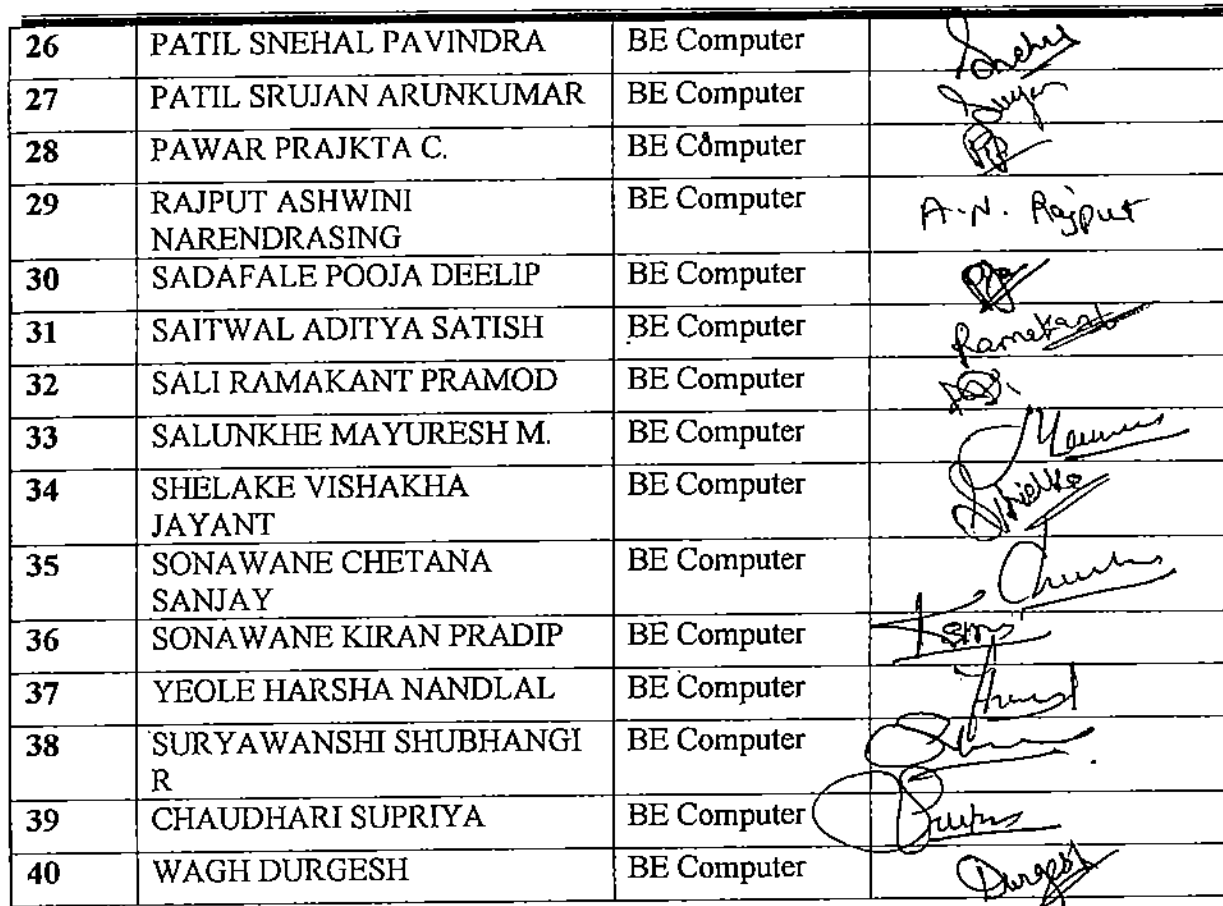 26 PATIL SNEHAL PAVINDRA BE Computer Snehal
27 PATIL SRUJAN ARUNKUMAR BE Computer Srujan
28 PAWAR PRAJKTA C. BE Computer
29 RAJPUT ASHWINI BE Computer A.N. Rajput
NARENDRASING
30 SADAFALE POOJA DEELIP BE Computer
31 SAITWAL ADITYA SATISH BE Computer Ramakant
32 SALI RAMAKANT PRAMOD BE Computer
33 SALUNKHE MAYURESH M. BE Computer
34 SHELAKE VISHAKHA BE Computer
JAYANT
35 SONAWANE CHETANA BE Computer
SANJAY
36 SONAWANE KIRAN PRADIP BE Computer
37 YEOLE HARSHA NANDLAL BE Computer
38 SURYAWANSHI SHUBHANGI BE Computer
R
39 CHAUDHARI SUPRIYA BE Computer
40 WAGH DURGESH BE Computer Durgesh